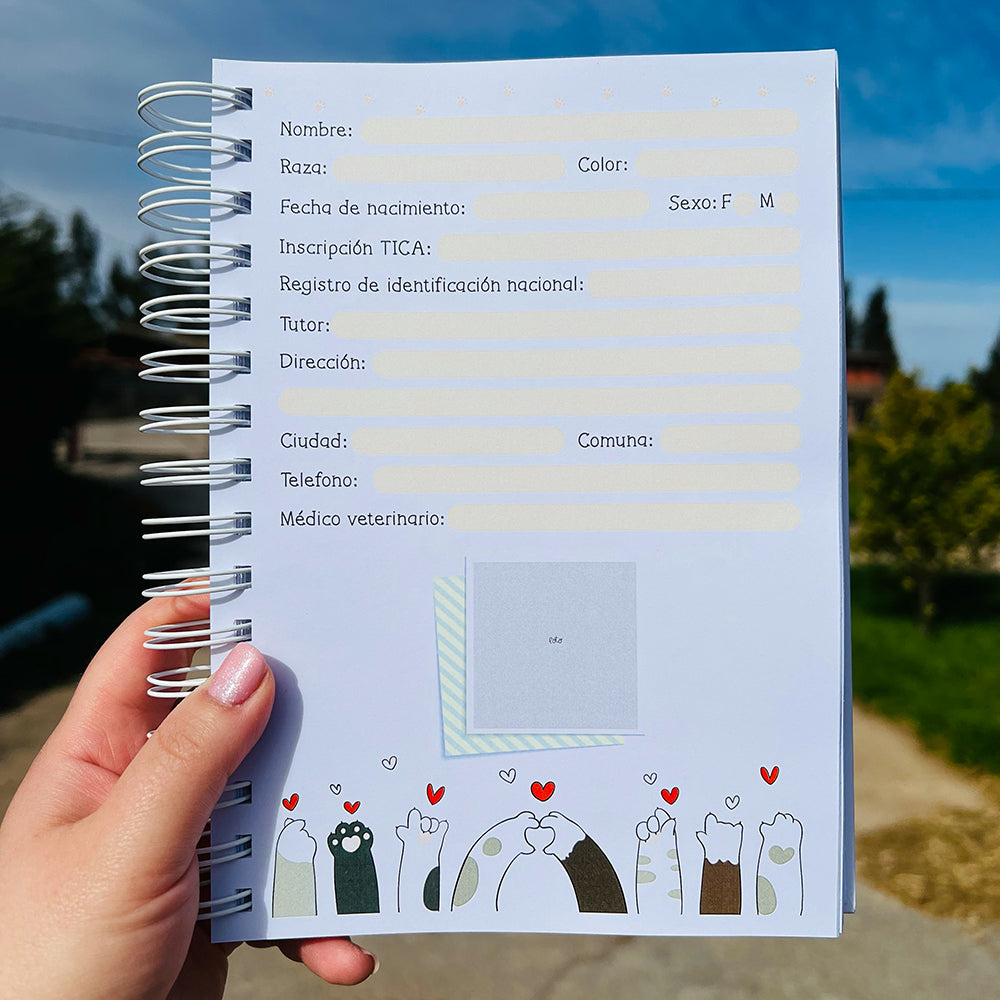 Nombre:
Raza: Color:
Fecha de nacimiento: Sexo: F M
Inscripción TICA:
Registro de identificación nacional:
Tutor:
Dirección:
Ciudad: Comuna:
Telefono:
Médico veterinario: